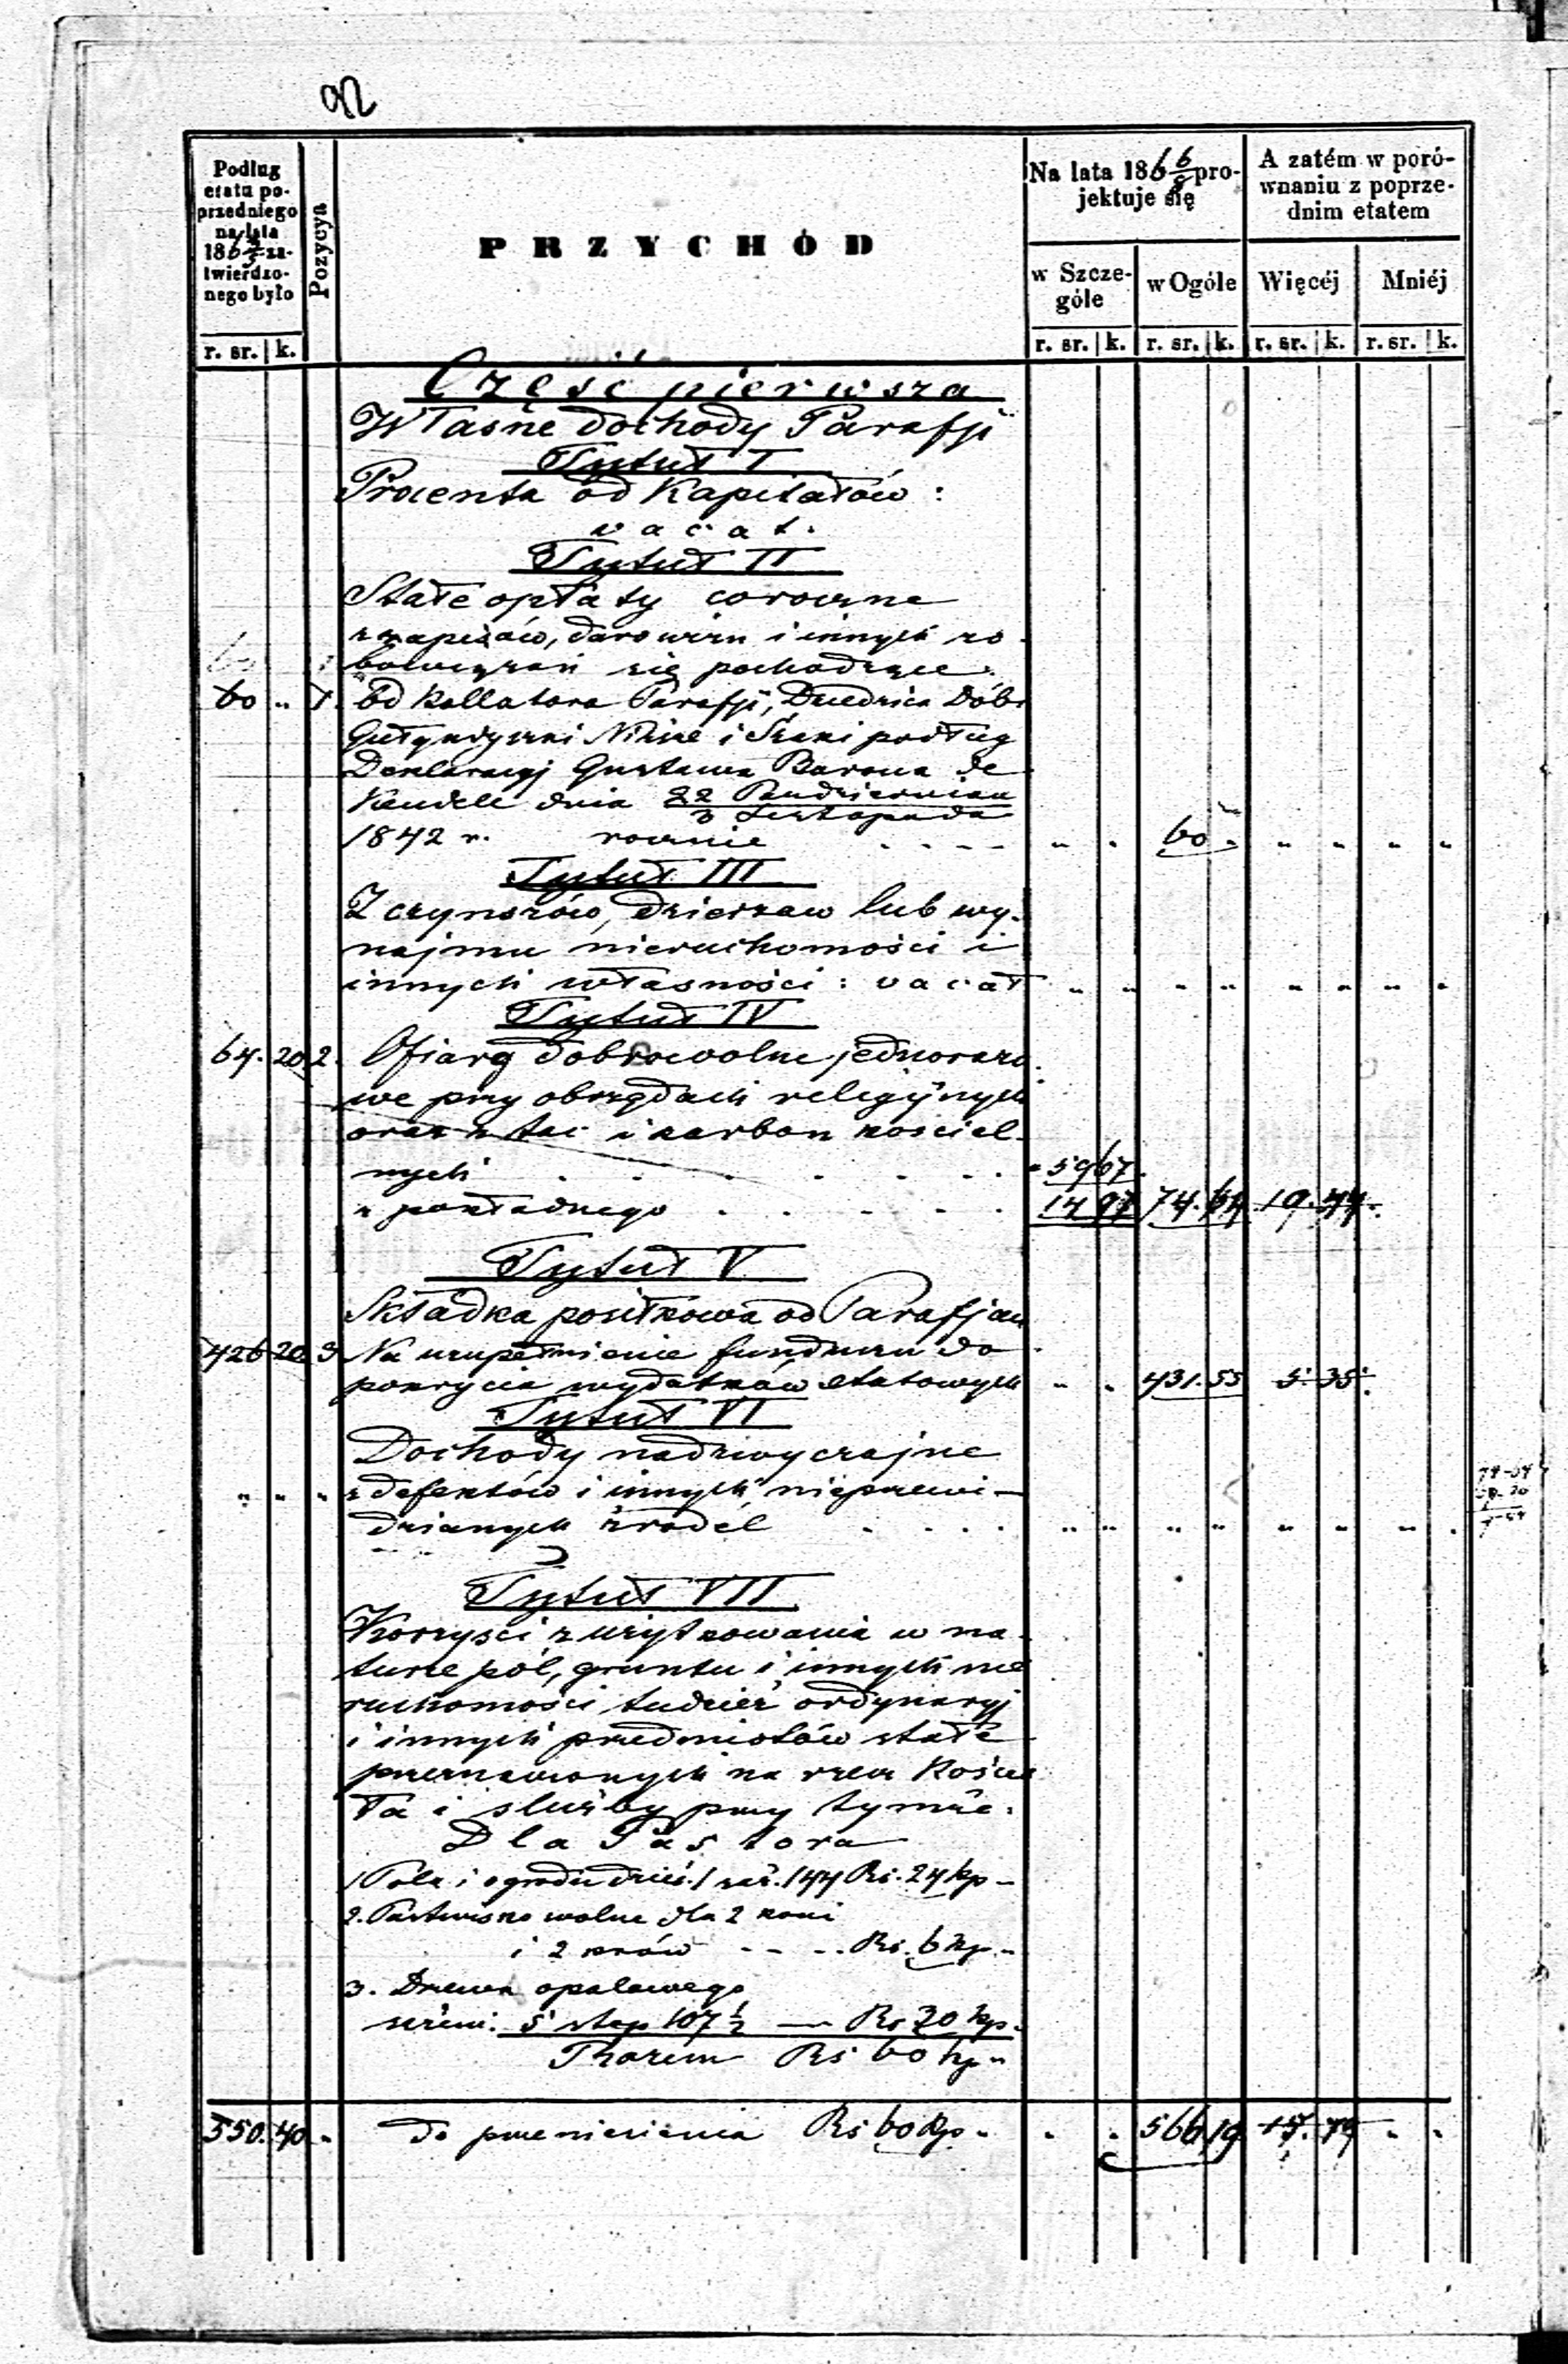 92
Podług etatu poprzedniego na lata 186 zatwierdzonego było
Pozycya
PRZYCHÓD
Na lata 186 6/8 projektuje się
A zatém w porównaniu z poprzednim etatem
w Szczególe
w Ogóle
Więcéj
Mniéj
r. sr. k. r. sr. k. r. sr. k. r. sr. k. r. sr. k.
Część pierwsza
Własne dochody Parafji
Tytuł I
Procenta od Kapitałów:
vacat.
Tytuł II
Stałe opłaty coroczne
z zapisów, darowizn i innych zo-
bowiązań się pochodzące:
60 " 1. Od Kollatora Parafji, Dziedzica Dóbr
Niższe i podług
Deklaracyj Gustawa Barona de
dnia 22 Października
3 Listopada
1842 r. rocznie . . . . " " 60 " " " " "
Tytuł III
Z czynszów, dzierżaw lub wy-
najmu nieruchomości i
innych własności: vacat " " " " " " " "
Tytuł IV
64. 20 2. Ofiary dobrowolne jednorazo-
we przy obrzędach religijnych
oraz z tac i karbon kościel-
nych . . . . . . 59 67
z pokładnego . . . . . 14 97 74. 64 19. 44
Tytuł V
Składka posiłkowa od Parafjan
426 20 3 Na uzupełnienie funduszu do
pokrycia wydatków etatowych " " 431. 55 5. 35
Tytuł VI
Dochody nadzwyczajne
" " " z defektów i innych nieprzewi-
dzianych źródeł . . . . " " " " " " " .
Tytuł VII
Korzyści z użytkowania w na-
turze pól, gruntu i innych nie
ruchomości tudzież ordynaryj
i innych przedmiotów stale
przeznaczonych na rzecz Kościo
ła i służby przy tymże:
Dla Pastora
1 Pola i ogrodu dzieś. 1 saż. 144 Rs. 24 kp -
2. Pastwisko wolne dla 2 koni
i 2 krów - - - Rs. 6 kp. "
3. Drzewa opałowego
sążni. 5 stop 107 ½ — Rs 30 kp.
Razem Rs 60 kp "
550. 40 " do przeniesienia Rs 60 kp " " " 566 19 15. 79 " "